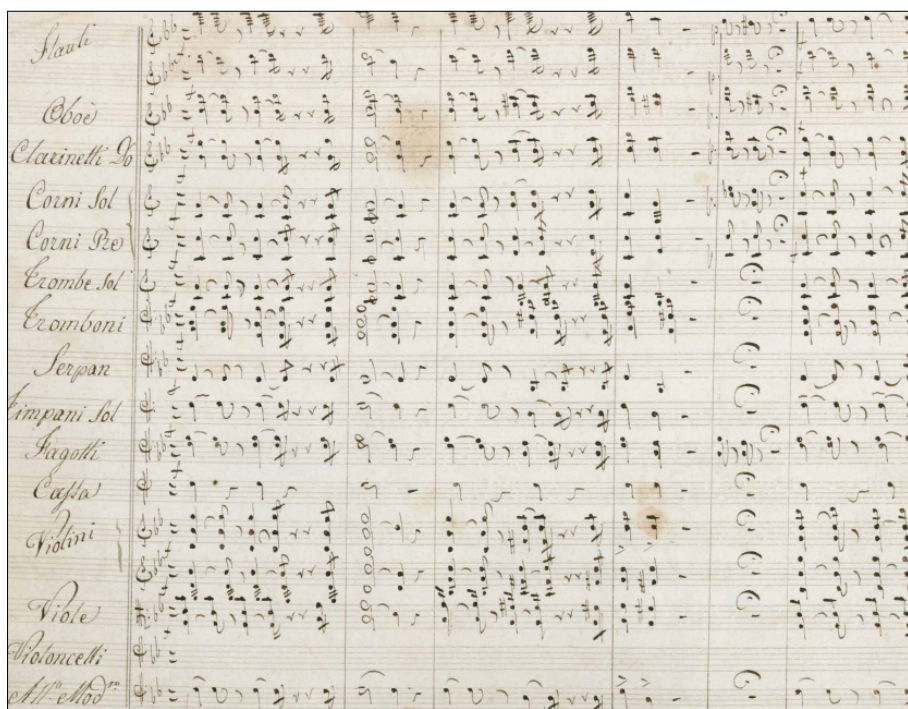 Flauti
Oboè
Clarinetti Do
Corni Sol
Corni Re
Trombe Sol
Tromboni
Serpan
Timpani Sol
Fagotti
Cassa
Violini
Viole
Violoncelli
All.º Mod.to